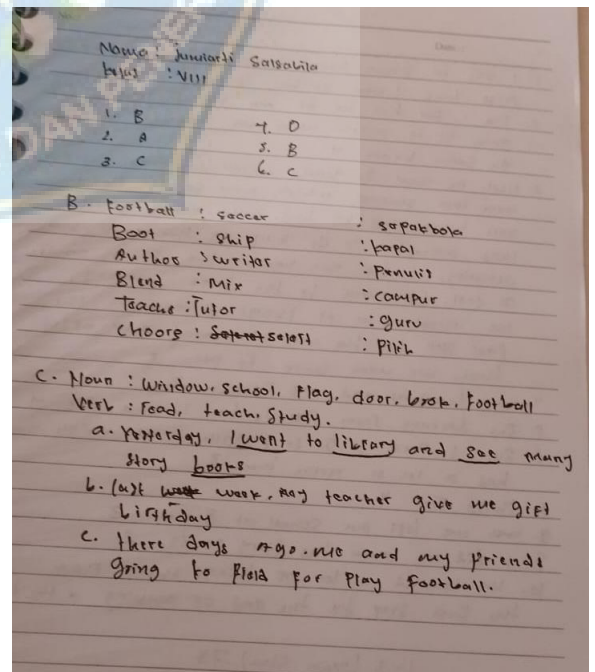 Nama : Juniarti Salsabila
kelas : VIII
1. B 4. D
2. A 5. B
3. C 6. C
B. Football : Saccer : sapakbola
Boot : Ship : kapal
Author : writar : Penulis
Blend : Mix : campur
Teache : Tutor : guru
choore : selert : Pilih
C. Noun : window, school, Flag, door, book, Football
Verb : read, teach, study.
a. Yesterday, I went to library and see many
story books
b. last week, my teacher give me gift
birthday
c. there days ago. me and my friends
going to field for play football.